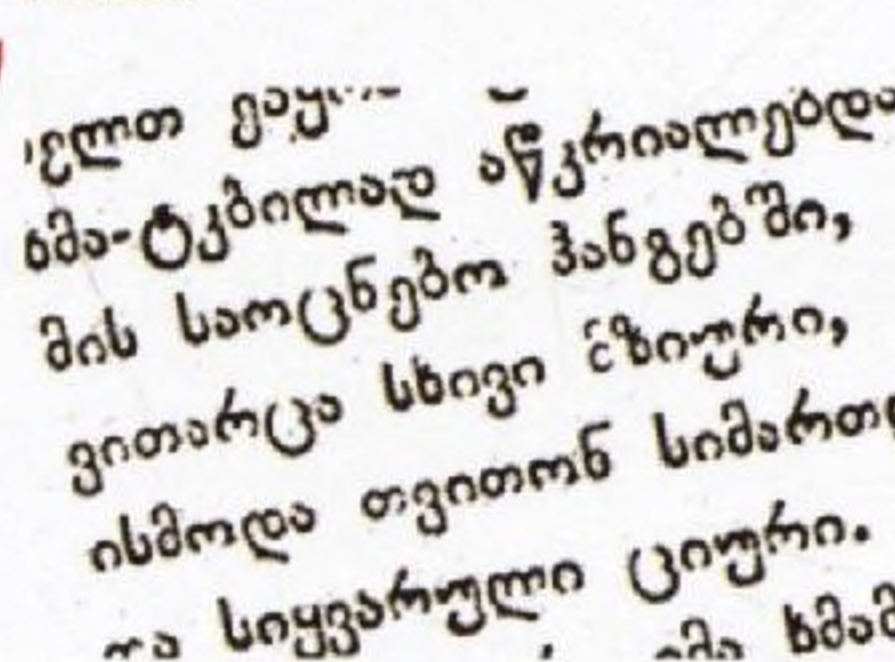 ხმა-ტკბილად აწკრიალებდა
მის საოცნებო ჰანგებში,
ვითარცა სხივი მზიური,
ისმოდა თვითონ
და სიყვარული ციური.